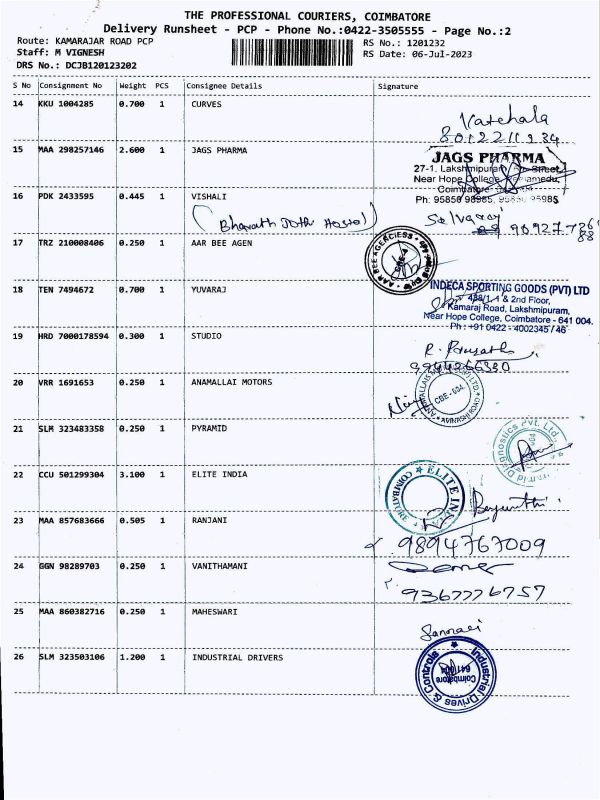 THE PROFESSIONAL COURIERS, COIMBATORE
Delivery Runsheet - PCP - Phone No.:0422-3505555 - Page No.:2
Route: KAMARAJAR ROAD PCP
RS No.: 1201232
Staff: M VIGNESH
RS Date: 06-Jul-2023
DRS No.: DCJB120123202
S No Consignment No Weight PCS Consignee Details Signature
14 KKU 1004285 0.700 1 CURVES
15 MAA 298257146 2.600 1 JAGS PHARMA
JAGS PHARMA
27-1, Lakshmipuram, Street,
Near Hope College,
Coimbatore
Ph: 95850 98985, 95850 98985
16 PDK 2433595 0.445 1 VISHALI
(Bharath Hostel)
Selvaraj
17 TRZ 210008406 0.250 1 AAR BEE AGEN
AAR BEE AGENCIESS
18 TEN 7494672 0.700 1 YUVARAJ
INDECA SPORTING GOODS (PVT) LTD
& 2nd Floor,
Kamaraj Road, Lakshmipuram,
Near Hope College, Coimbatore - 641 004.
Ph : +91 0422 - 4002345 / 46
19 HRD 7000178594 0.300 1 STUDIO
R. Prasath
9944266330
20 VRR 1691653 0.250 1 ANAMALLAI MOTORS
CBE-004
AVINASHI ROAD
21 SLM 323483358 0.250 1 PYRAMID
Diagnostics Pvt. Ltd.
22 CCU 501299304 3.100 1 ELITE INDIA
ELITE INDIA
COIMBATORE
23 MAA 857683666 0.505 1 RANJANI
9894767009
24 GGN 98289703 0.250 1 VANITHAMANI
9367776757
25 MAA 860382716 0.250 1 MAHESWARI
26 SLM 323503106 1.200 1 INDUSTRIAL DRIVERS
Industrial Drives & Controls
Coimbatore
641 004